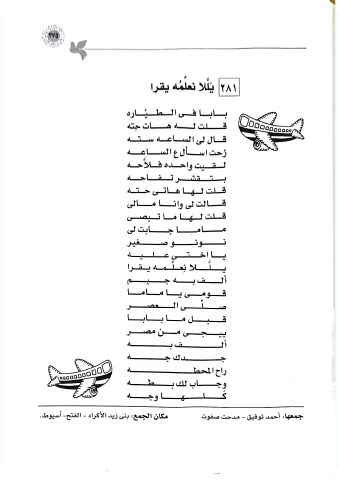 ٢٧٥
٢٨١ يَلَّلا نعلّمُه يقرا
بابا فى الطيّاره
قلت له هات حِته
قال لى الساعه سته
رُحت اسأل ع الساعه
لقيت واحده فلاحه
بتقشر تفاحه
قلت لها هاتى حته
قالت لى وانا مالى
قلت لها ما تبصى
ماما جابت لى
نونو صغير
يا اختى عليه
يلّلا نعلّمه يقرا
ألف به جيم
قومى يا ماما
صلّى العصر
قبل ما بابا
ييجى من مصر
ألف به
جدك جه
راح المحطه
وجاب لك بطه
كلها وجه
جمعها: أحمد توفيق - مدحت صفوت
مكان الجمع: بنى زيد الأكراد - الفتح- أسيوط.